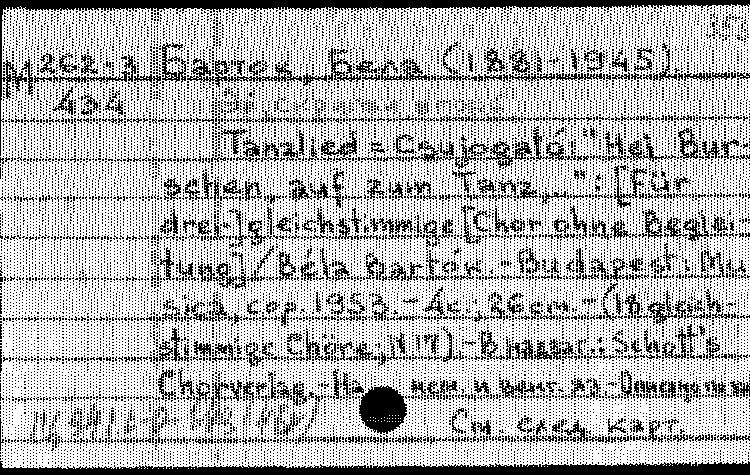 М 262.3 Барток, Бела (1881-1945).
434
Tanzlied = Csujogató: "Hei Bur-
schen, auf zum Tanz...": [Für
drei-] gleichstimmige [Chor ohne Beglei-
tung] / Béla Bartók. - Budapest: Mu-
sica, cop. 1953. - 4c.; 26cm. - (18 gleich-
stimmige Chöre; N 17). - В надзаг.: Schott's
Chorverlag. - На нем. и венг. яз -
См. след. карт.